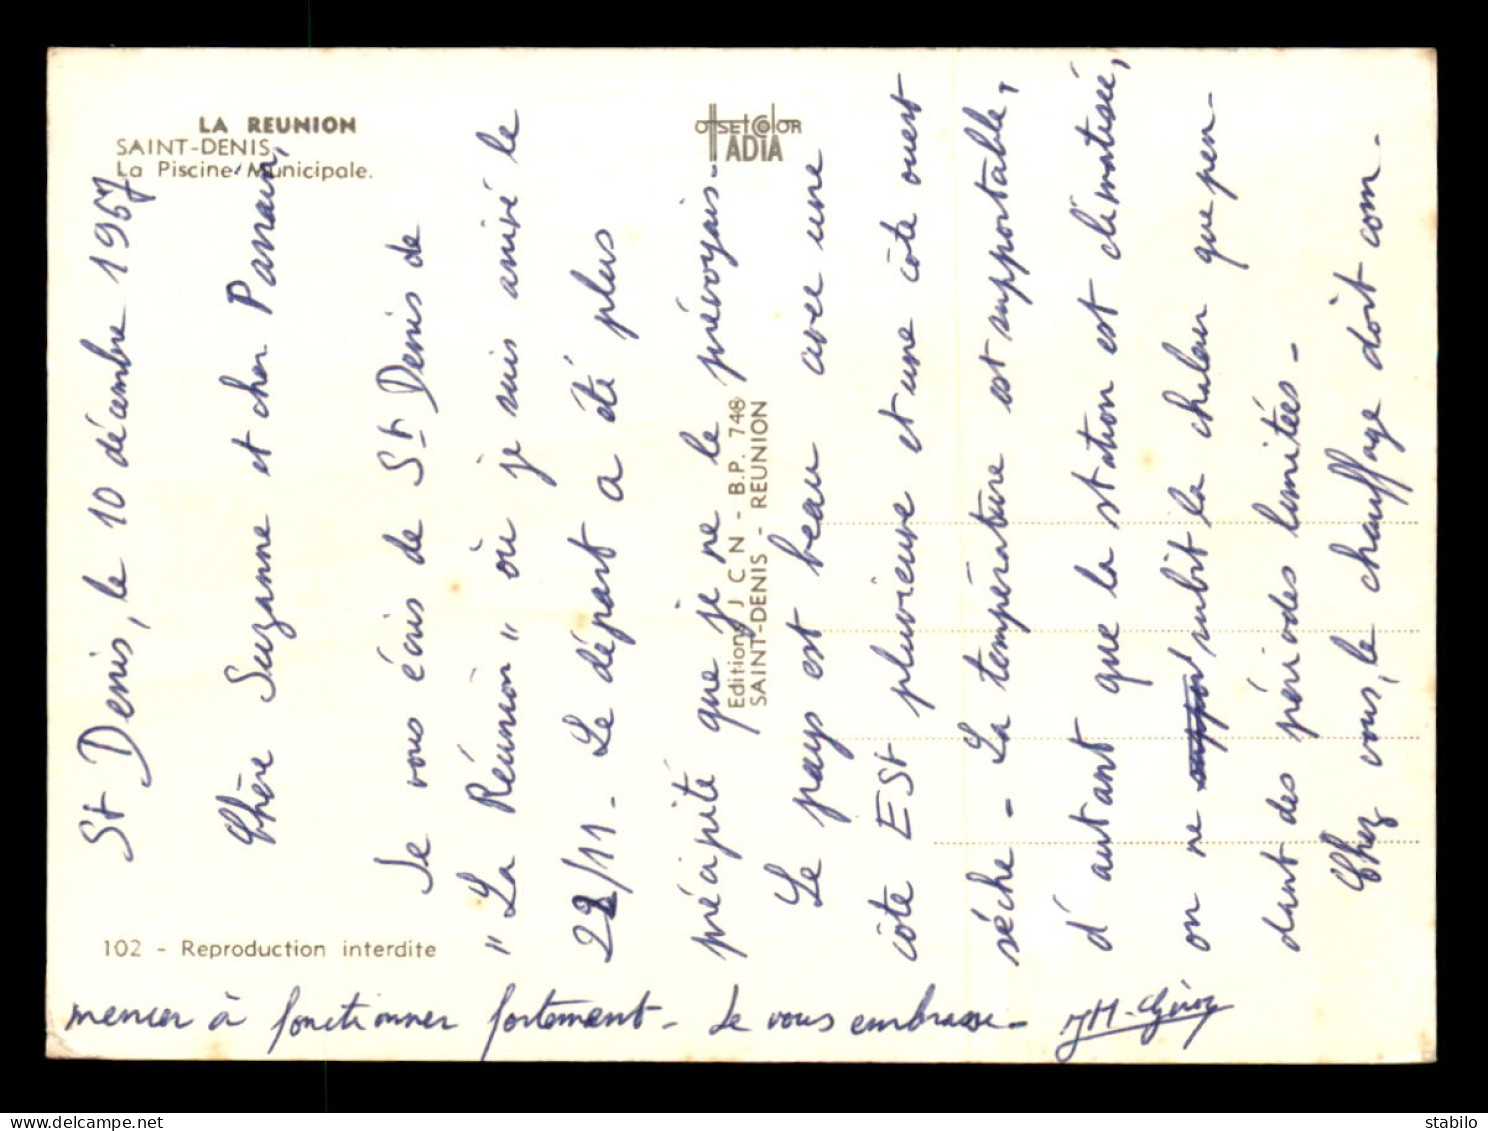 LA REUNION
SAINT-DENIS
La Piscine Municipale.
OFFSET COLOR
ADIA
Editions J C N - B.P. 748
SAINT-DENIS - REUNION
102 - Reproduction interdite
St Denis, le 10 décembre 1957
Chère Suzanne et cher Parrain,
Je vous écris de St Denis de
"La Réunion" où je suis arrivé le
22/11. Le départ a été plus
précipité que je ne le prévoyais.
Le pays est beau avec une
côte EST pluvieuse et une côte ouest
sèche - La température est supportable,
d'autant que la station est climatisée,
on ne subit la chaleur que pen-
dant des périodes limitées -
Chez vous, le chauffage doit com-
mencer à fonctionner fortement - Je vous embrasse -
delcampe.net
stabilo